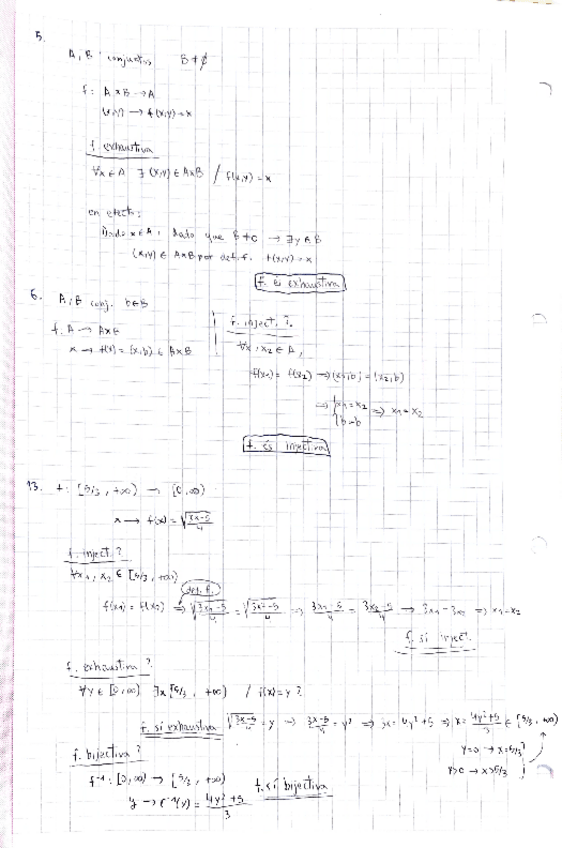 5.
A, B conjuntos B ≠ ∅
f: A×B → A
(x,y) → f(x,y) = x
f. exhaustiva
∀x ∈ A ∃ (x,y) ∈ A×B / f(x,y) = x
en efecto:
Dado x ∈ A, dado que B ≠ ∅ → ∃ y ∈ B
(x,y) ∈ A×B por def. f. f(x,y) = x
f. és exhaustiva
6. A, B conj. b ∈ B
f: A → A×B
x → f(x) = (x,b) ∈ A×B
f. inject. ?
∀x1, x2 ∈ A,
f(x1) = f(x2) → (x1,b) = (x2,b)
→ { x1 = x2 b = b ⇒ x1 = x2
f. és injectiva
13. f: [5/3, +∞) → [0, ∞)
x → f(x) = √(3x-5 / 4)
f. inject ?
∀x1, x2 ∈ [5/3, +∞)
def. f.
f(x1) = f(x2) ⇒ √(3x1-5 / 4) = √(3x2-5 / 4) ⇒ 3x1-5 / 4 = 3x2-5 / 4 → 3x1 = 3x2 ⇒ x1 = x2
f. sí inject.
f. exhaustiva ?
∀y ∈ [0, ∞) ∃x [5/3, +∞) / f(x) = y ?
f. sí exhaustiva √(3x-5 / 4) = y ⇒ 3x-5 / 4 = y² ⇒ 3x = 4y² + 5 ⇒ x = 4y²+5 / 3 ∈ [5/3, +∞)
y=0 → x=5/3
y>0 → x>5/3
f. bijectiva ?
f⁻¹: [0, ∞) → [5/3, +∞)
f. sí bijectiva
y → f⁻¹(y) = 4y² + 5 / 3